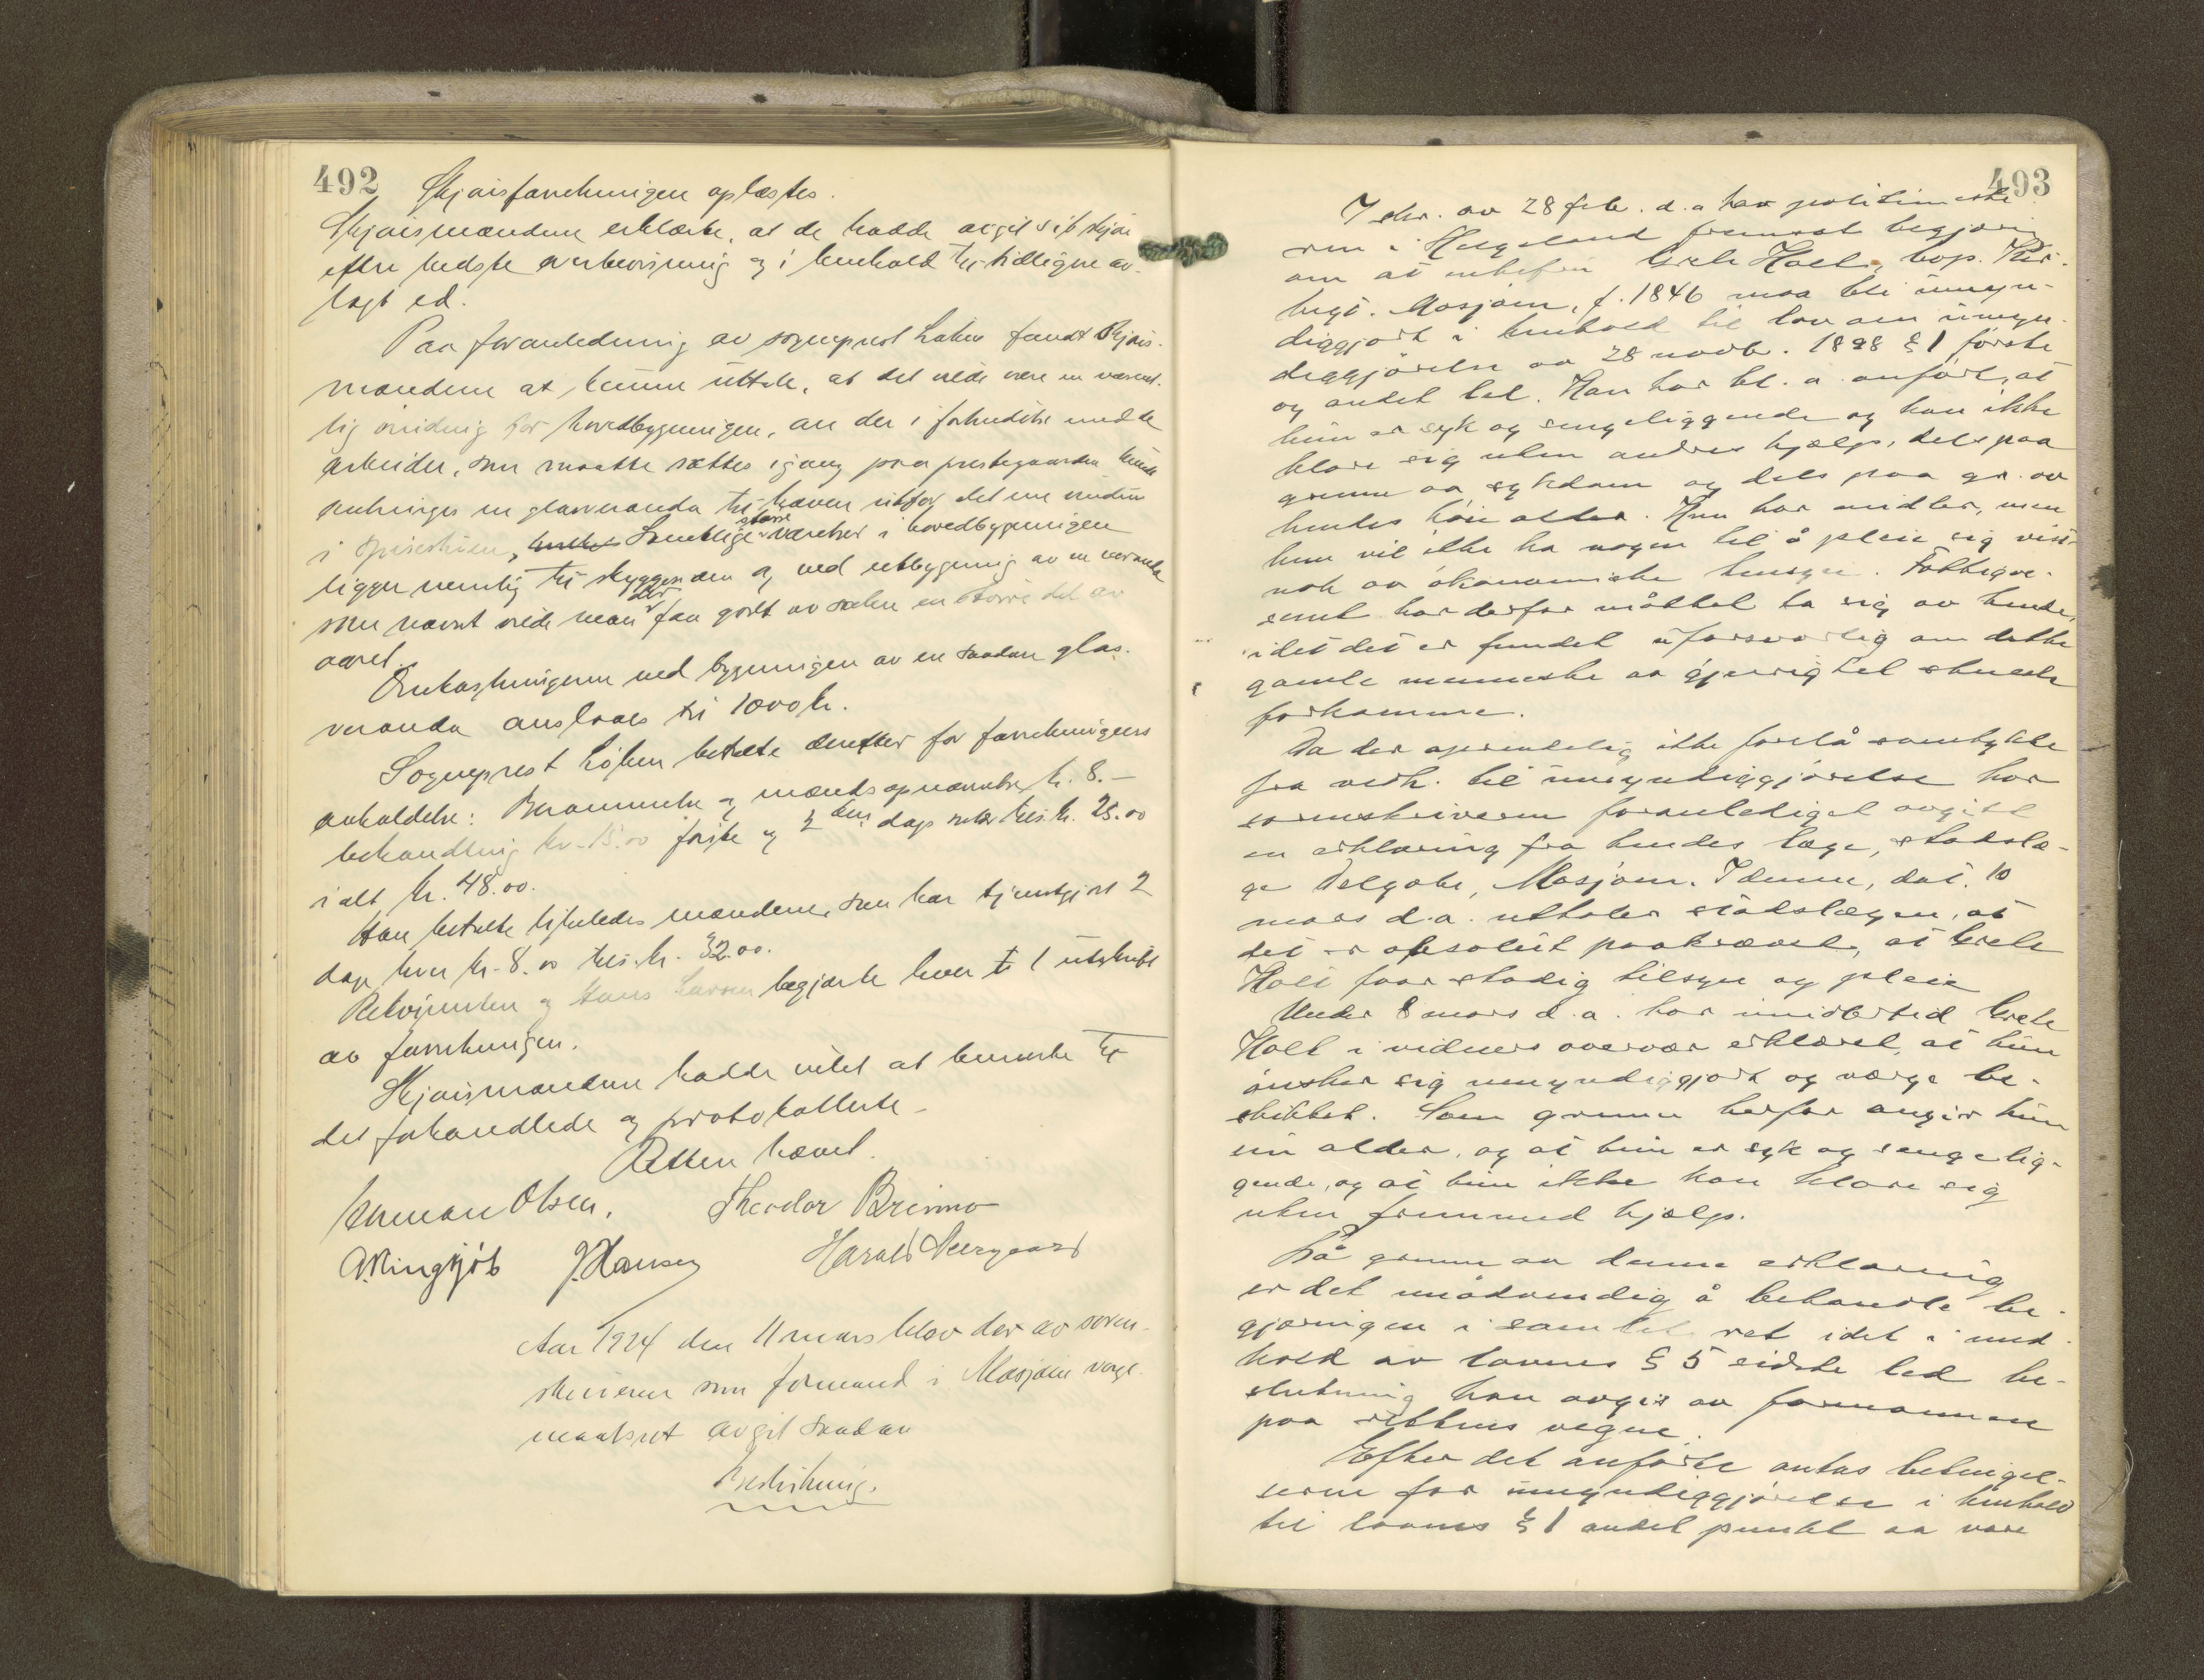 492
Skjønsforretningen oplæstes.
Skjønsmændene erklærte, at de hadde avgit sit skjøn
efter bedste overbevisning og i henhold til tidligere av-
lagt ed.
Paa foranledning av sogneprest Løken fandt skjøns-
mændene at kunne uttale, at det vilde være en væsent-
lig vinding for hovedbygningen, om der i forbindelse med de
arbeider, som maatte sættes igang paa prestegaarden kunde
anbringes en glasveranda til haven utfor det ene vindu
i spisestuen, Samtlige større værelser i hovedbygningen
ligger nemlig til skyggesiden og ved utbygning av en veranda
som nævnt vilde man der faa godt av solen en større del av
aaret.
Omkostningerne ved bygningen av en saadan glas-
veranda ansloges til 1000 kr.
Sogneprest Løken betalte derefter for forretningens
avholdelse: Berammelse og mænds opnævnelse kr. 8.-
behandling kr. 15.00 første og 2den dags tils. kr. 25.00
ialt kr. 48.00.
Han betalte likeledes mændene, som har tjenstgjort 2
dage hver kr. 8.00 tils. kr. 32.00.
Rekvirenten og Hans Larsen begjærte hver 1 utskrift
av forretningen.
Skjønsmændene hadde intet at bemerke til
det forhandlede og protokollerte.
Retten hævet.
Herman Olsen. Theodor Brinmo
A. Ringtjøb J. Hansen Harald Neergaard
Aar 1924 den 11 mars blev der av soren-
skriveren som formand i Mosjøen verge-
maalsret avgit saadan
Beslutning.
493
I skr. av 28 feb. d.a. har politimeste-
ren i Helgeland fremsat begjæring
om at Grete Holt, bop.
Mosjøen, f. 1846 maa bli umyn-
diggjort i henhold til lov om umyn-
diggjørelse av 28 novbr. 1898 § 1 første
og andet led. Han har bl. a. anført, at
hun er syk og sengeliggende og kan ikke
klare sig uten andres hjælp, dels paa
grunn av sykdom og dels paa gr. av
hendes høie alder. Hun har midler, men
hun vil ikke ha nogen til å pleie sig visst-
nok av økonomiske hensyn. Fattigve-
senet har derfor måttet ta sig av hende,
idet det er fundet uforsvarlig om dette
gamle menneske av gjerrighet skulde
forkomme.
Da der oprindelig ikke forelå samtykke
fra vedk. til umyndiggjørelse har
sorenskriveren foranlediget avgitt
en erklæring fra hendes læge, stadslæ-
ge Delgobe, Mosjøen. I denne, dat. 10
mars d.a. uttaler stadslægen, at
det er absolut paakrævet, at Grete
Holt faar stadig tilsyn og pleie
Under 8 mars d.a. har imidlertid Grete
Holt i vidners overvær erklæret, at hun
ønsker sig umyndiggjort og værge be-
skikket. Som grunn herfor angir hun
sin alder, og at hun er syk og sengelig-
gende, og at hun ikke kan klare sig
uten fremmed hjælp.
På grunn av denne erklæring
er det unødvendig å behandle be-
gjæringen i samlet ret idet i med-
hold av lovens § 5 sidste led be-
slutning kan avgis av formannen
paa rettens vegne.
Efter det anførte antas betingel-
serne for umyndiggjørelse i henhold
til lovens § 1 andet punkt aa være